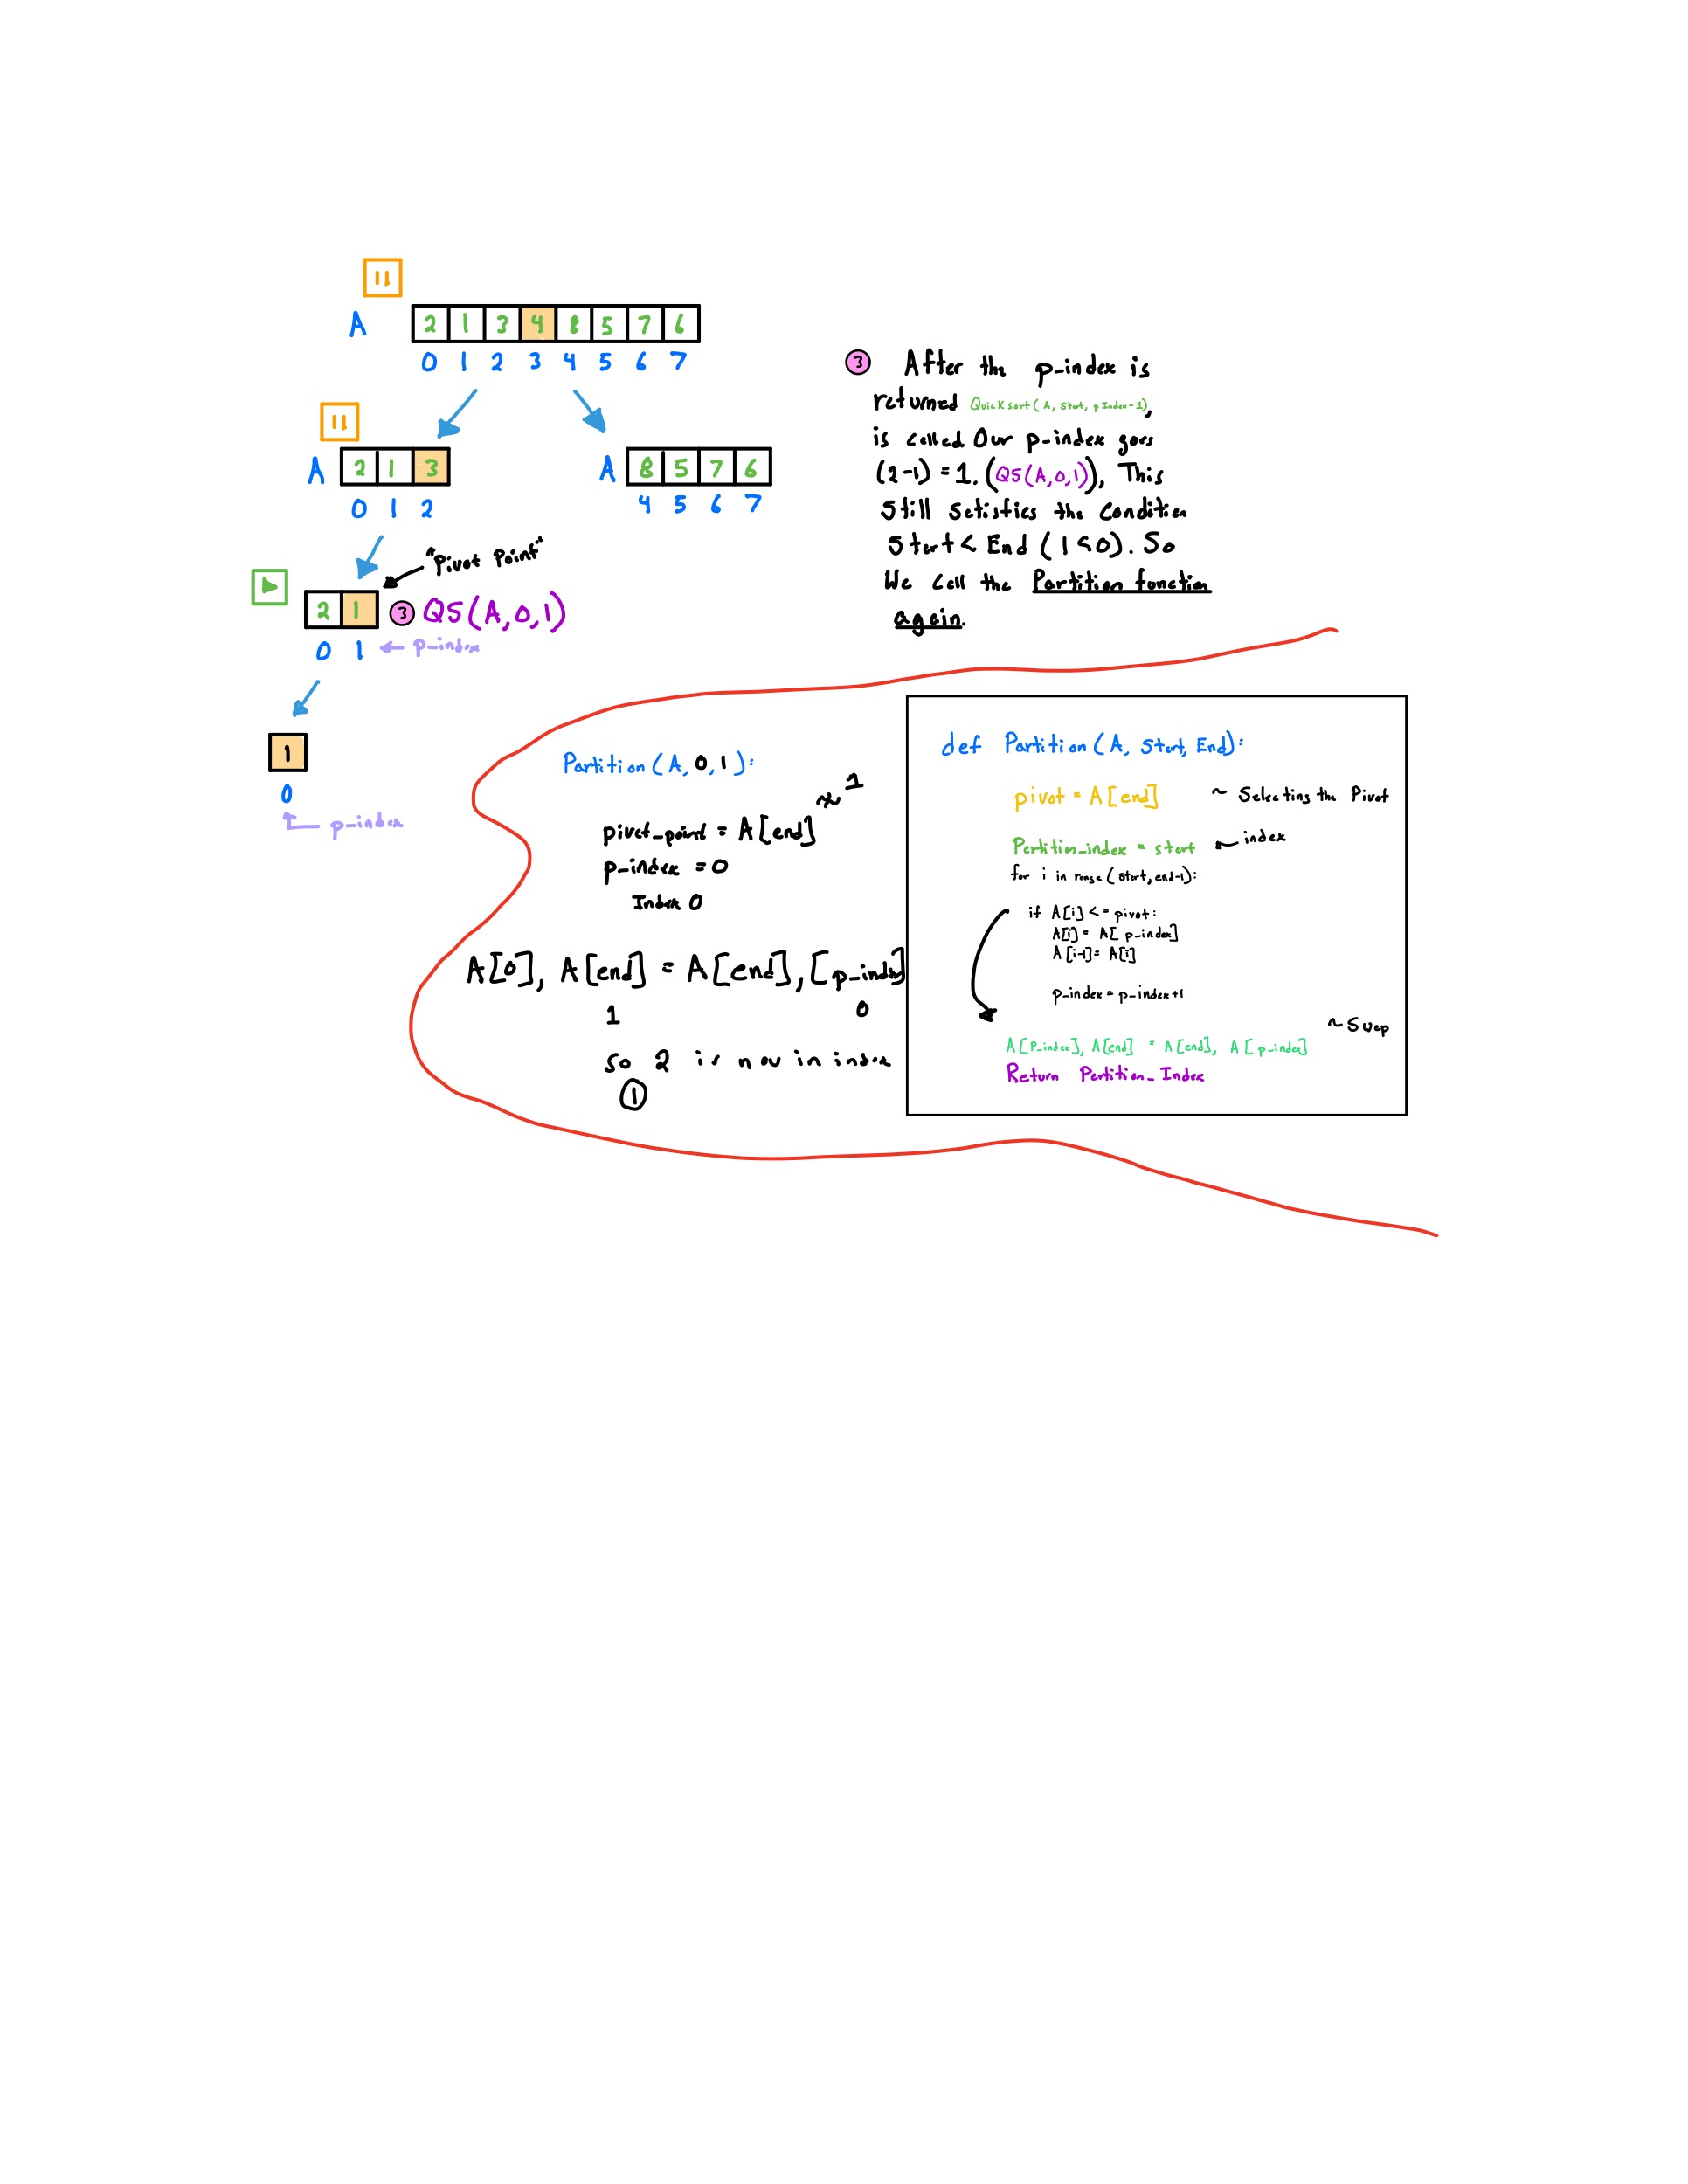 A 2 1 3 4 8 5 7 6
0 1 2 3 4 5 6 7
A 2 1 3
0 1 2
A 8 5 7 6
4 5 6 7
"Pivot Point"
2 1 3 QS(A,0,1)
0 1 ← p-index
1
0
p-index
3 After the p-index is
returned Quicksort(A, Start, pIndex-1),
is called Our p-index goes
(2-1) = 1. (QS(A,0,1)), This
still satisfies the condition
Start < End (1<0). So
We call the Partition function
again.
Partition(A, 0, 1):
pivot_point = A[end] ~ 1
p-index = 0
Index 0
A[0], A[end] = A[end], [p-index]
1 0
so 2 is now in index
1
def Partition(A, Start, End):
pivot = A[end] ~ Selecting the Pivot
Partition_index = start ← index
for i in range(start, end-1):
if A[i] <= pivot:
A[i] = A[p-index]
A[i-1] = A[i]
p-index = p-index+1
~ Swap
A[P-index], A[end] = A[end], A[p-index]
Return Partition_Index